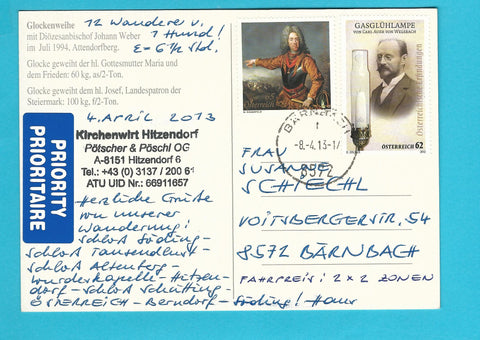 Glockenweihe
mit Diözesanbischof Johann Weber
im Juli 1994, Attendorfberg.
Glocke geweiht der hl. Gottesmutter Maria und
dem Frieden: 60 kg, as/2-Ton.
Glocke geweiht dem hl. Josef, Landespatron der
Steiermark: 100 kg, f/2-Ton.
12 Wanderer u.
1 Hund!
E = 6 ½ Std.
4. APRIL 2013
PRIORITY
PRIORITAIRE
Kirchenwirt Hitzendorf
Pötscher & Pöschl OG
A-8151 Hitzendorf 6
Tel.: +43 (0) 3137 / 200 61
ATU UID Nr.: 66911657
Herzliche Grüße
von unserer
Wanderung!
Schloß Söding -
Schloß Tausendlust -
Schloß Altenberg -
Wunderkapelle - Hitzen-
dorf - Schloß Schütting -
ÖSTERREICH - Berndorf - Söding! Hans
Österreich
GASGLÜHLAMPE
VON CARL AUER VON WELSBACH
Österreichische Erfindungen
ÖSTERREICH 62
BÄRNBACH
1
-8.-4.13-17
8572
FRAU
SUSANNE
SCHIECHL
VOITSBERGERSTR. 54
8572 BÄRNBACH
FAHRPREIS: 2 x 2 ZONEN